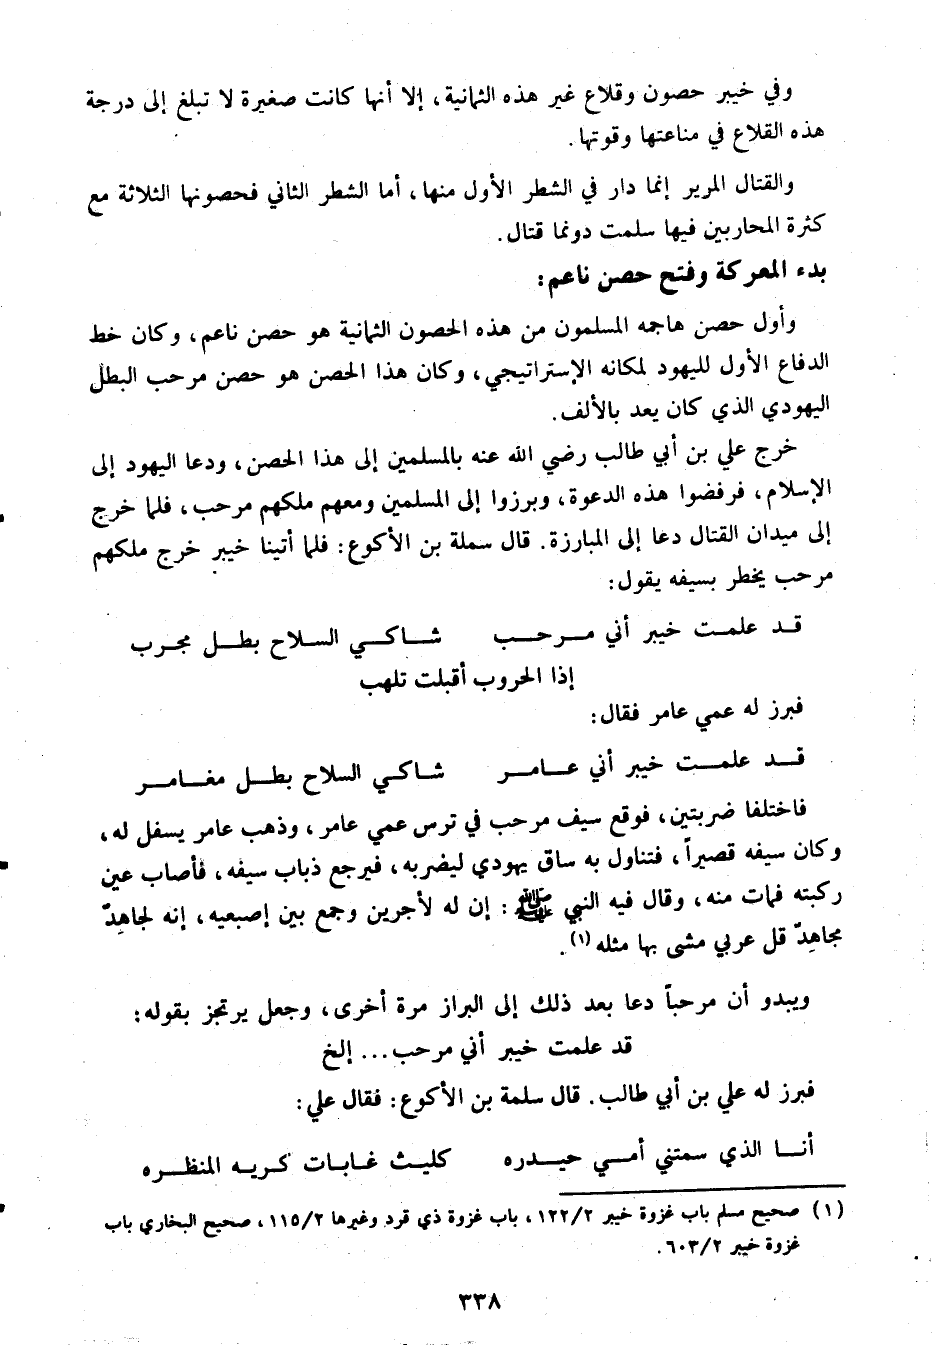 وفي خيبر حصون وقلاع غير هذه الثمانية، إلا أنها كانت صغيرة لا تبلغ إلى درجة
هذه القلاع في مناعتها وقوتها.
والقتال المرير إنما دار في الشطر الأول منها، أما الشطر الثاني فحصونها الثلاثة مع
كثرة المحاربين فيها سلمت دونما قتال.
بدء المعركة وفتح حصن ناعم:
وأول حصن هاجمه المسلمون من هذه الحصون الثمانية هو حصن ناعم، وكان خط
الدفاع الأول لليهود لمكانه الإستراتيجي، وكان هذا الحصن هو حصن مرحب البطل
اليهودي الذي كان يعد بالألف.
خرج علي بن أبي طالب رضي الله عنه بالمسلمين إلى هذا الحصن، ودعا اليهود إلى
الإسلام، فرفضوا هذه الدعوة، وبرزوا إلى المسلمين ومعهم ملكهم مرحب، فلما خرج
إلى ميدان القتال دعا إلى المبارزة. قال سملة بن الأكوع: فلما أتينا خيبر خرج ملكهم
مرحب يخطر بسيفه يقول:
قـد علمـت خيبر أني مـرحـب شـاكـي السـلاح بطـل مجـرب
إذا الحروب أقبلت تلهب
فبرز له عمي عامر فقال:
قـد علمـت خيبر أني عـامـر شـاكـي السلاح بطـل مغـامـر
فاختلفا ضربتين، فوقع سيف مرحب في ترس عمي عامر، وذهب عامر يسفل له،
وكان سيفه قصيراً، فتناول به ساق يهودي ليضربه، فيرجع ذباب سيفه، فأصاب عين
ركبته فمات منه، وقال فيه النبي ﷺ: إن له لأجرين وجمع بين إصبعيه، إنه لجاهِدٌ
مجاهِدٌ قل عربي مشى بها مثله(١).
ويبدو أن مرحباً دعا بعد ذلك إلى البراز مرة أخرى، وجعل يرتجز بقوله:
قد علمت خيبر أني مرحب... إلخ
فبرز له علي بن أبي طالب. قال سلمة بن الأكوع: فقال علي:
أنـا الذي سمتني أمـي حيـدره كليـث غـابـات كـريـه المنظـره
(١) صحيح مسلم باب غزوة خيبر ١٢٢/٢، باب غزوة ذي قرد وغيرها ١١٥/٢، صحيح البخاري باب
غزوة خيبر ٦٠٣/٢.
٣٣٨